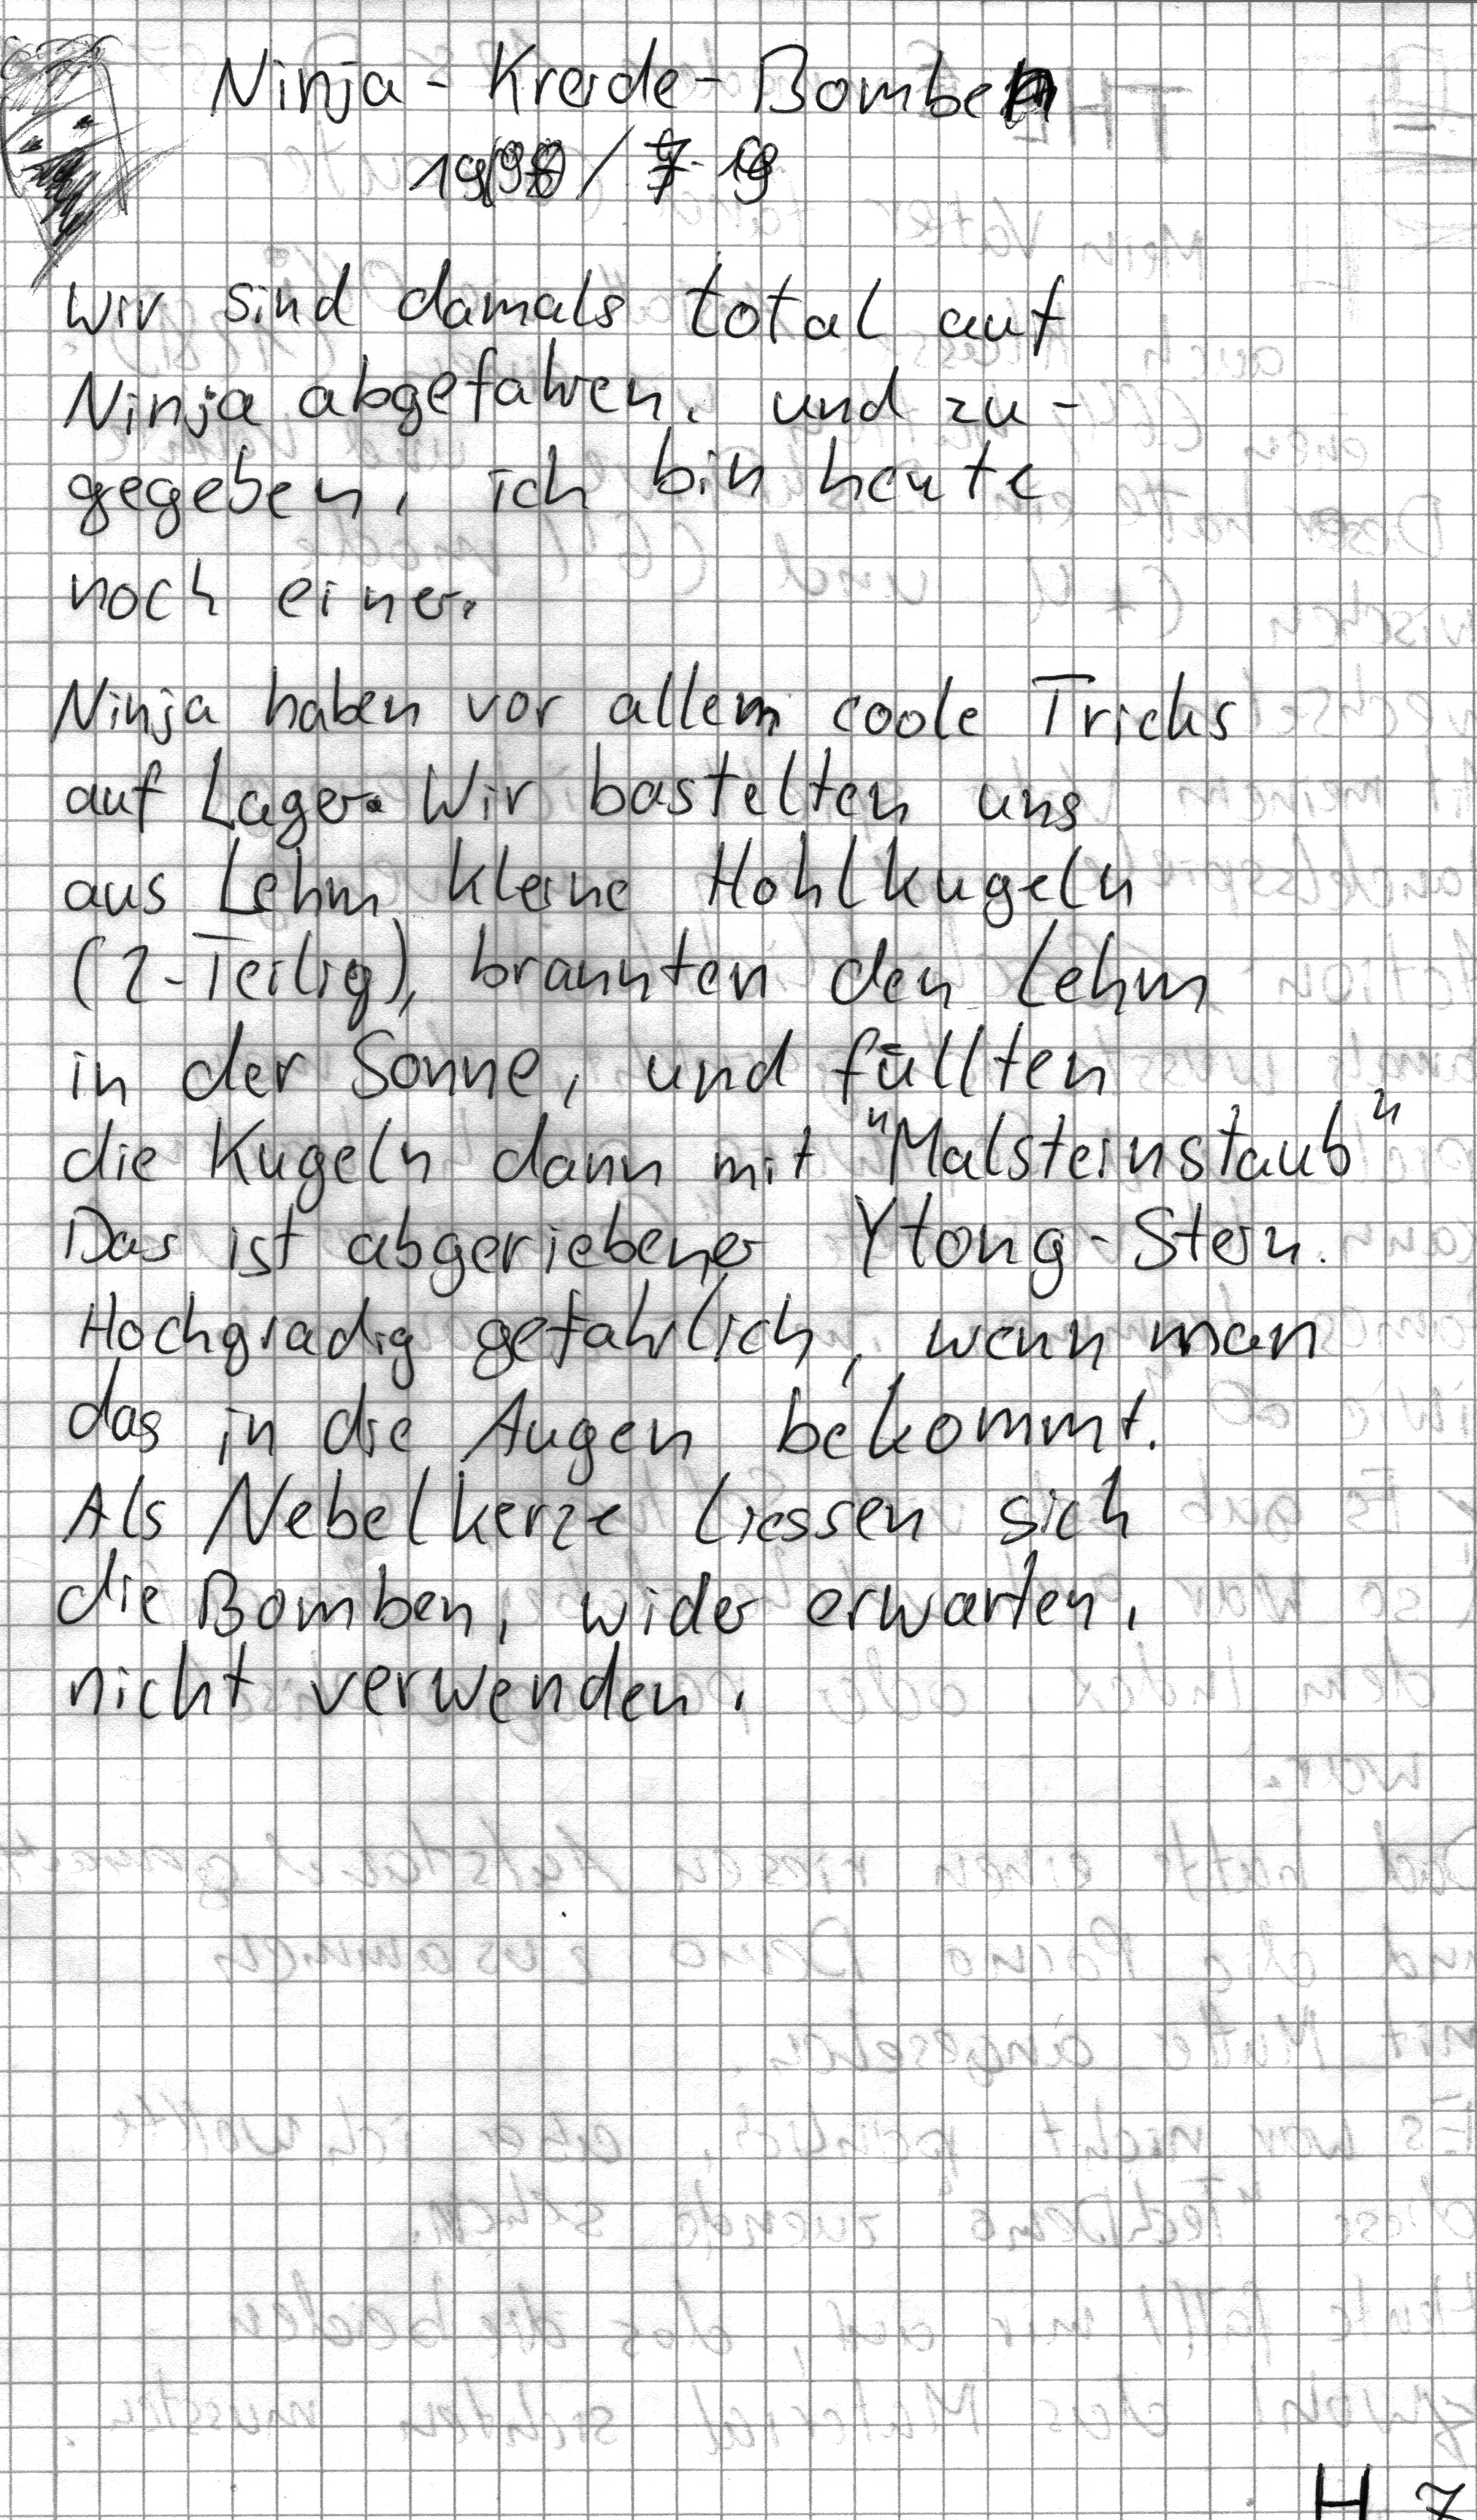 Ninja - Kreide - Bomben
wir sind damals total auf
Ninja abgefahren, und zu-
gegeben, ich bin heute
noch einer.
Ninja haben vor allem coole Tricks
auf Lager. Wir bastelten uns
aus Lehm kleine Hohlkugeln
(2-Teilig), brannten den Lehm
in der Sonne, und füllten
die Kugeln dann mit "Malsteinstaub"
Das ist abgeriebener Ytong-Stein.
Hochgradig gefährlich, wenn man
das in die Augen bekommt.
Als Nebelkerze liessen sich
die Bomben, wider erwarten,
nicht verwenden.
H 7